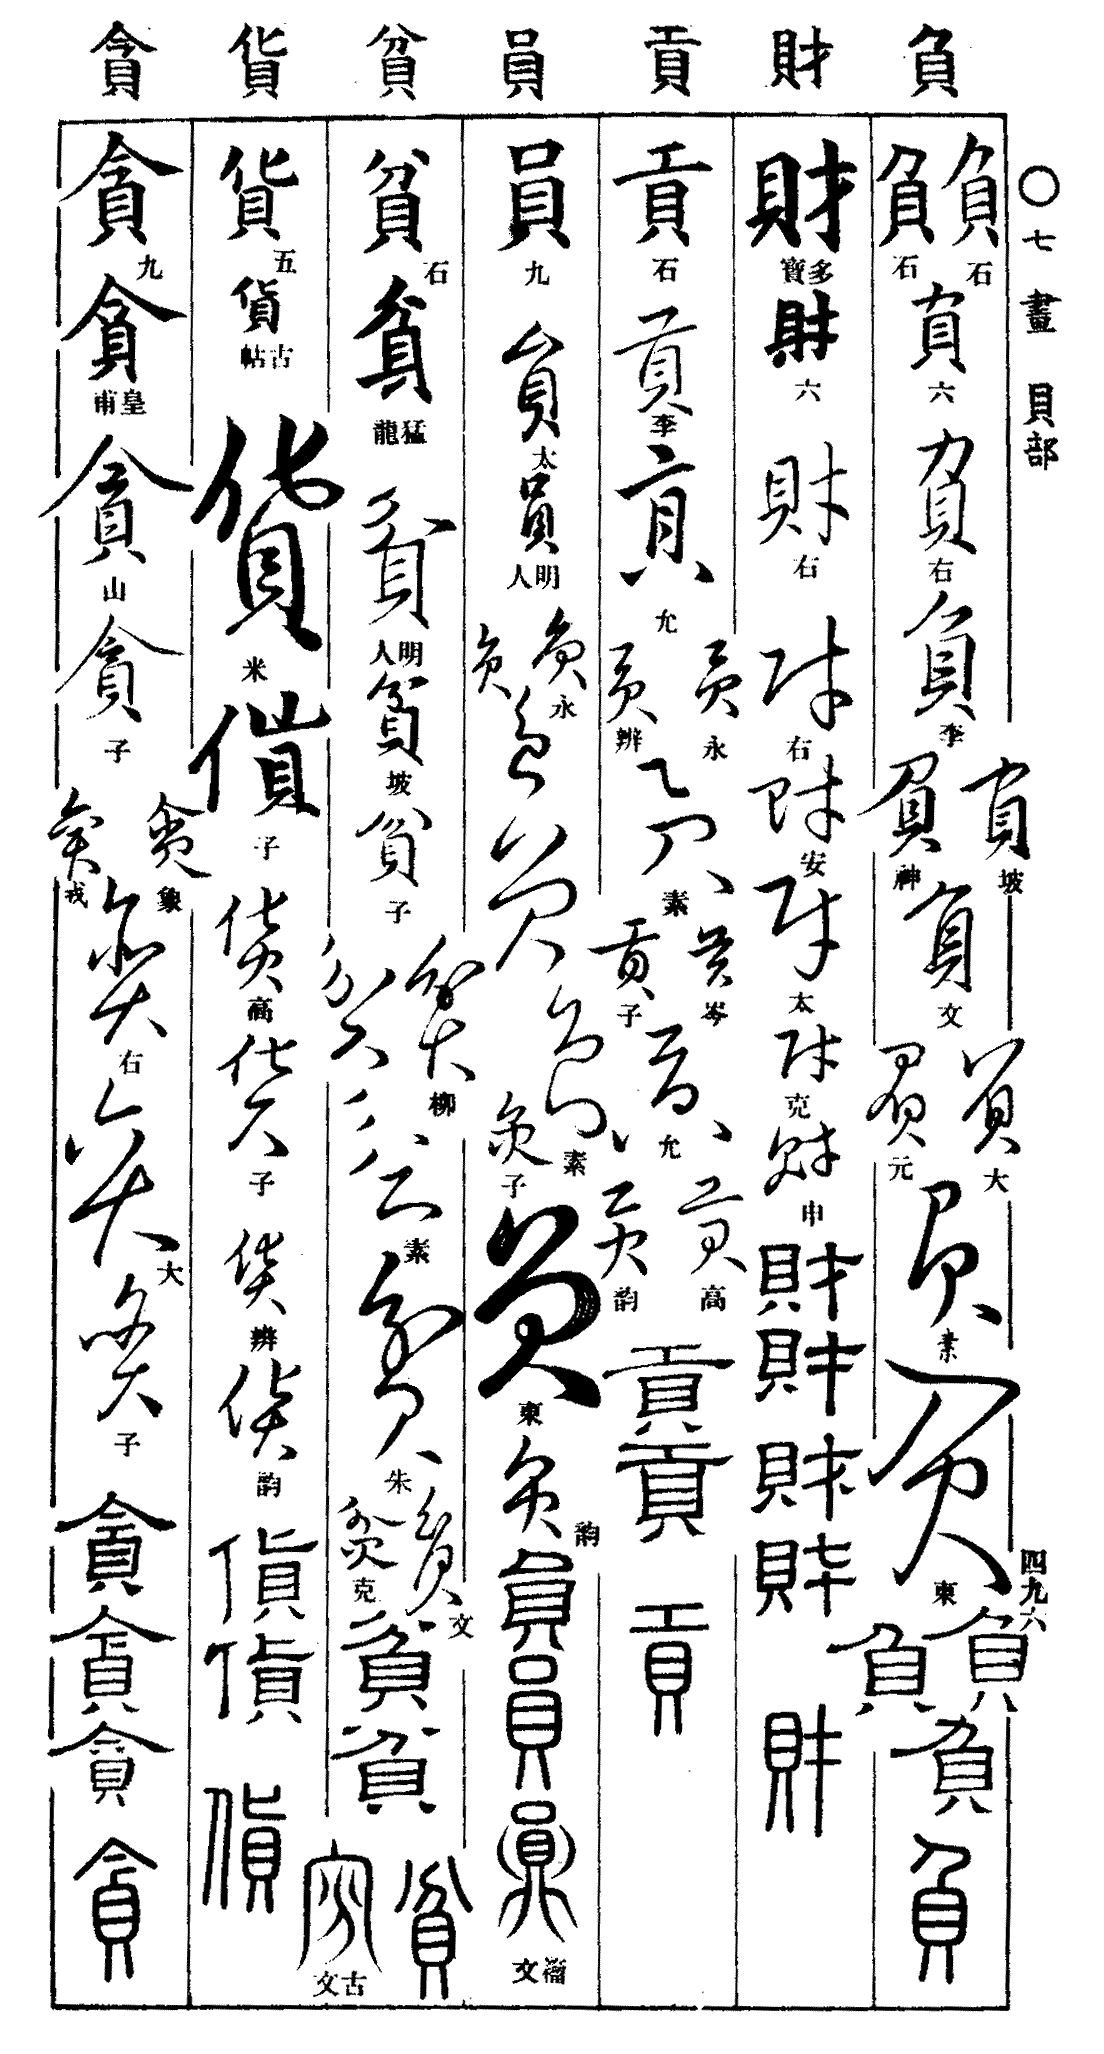 ○七畫 貝部
四九六
負 財 貢 員 貧 貨 貪
負石 負石 負六 負右 負李 負坡 負神 負文 負大 負元 負素 負東 負 負 負 負
財多寶 財六 財右 財右 財安 財太 財克 財申 財 財 財 財 財
貢石 貢李 貢允 貢永 貢辨 貢素 貢岑 貢子 貢允 貢高 貢韵 貢 貢 貢
員九 員太 員明人 員永 員 員 員 員素 員子 員東 員韵 員 員 鼎籀文
貧石 貧猛龍 貧明人 貧坡 貧子 貧柳 貧 貧素 貧朱 貧文 貧克 貧 貧 貧 古文
貨五 貨古帖 貨米 貨子 貨高 貨子 貨辨 貨韵 貨 貨 貨
貪九 貪皇甫 貪山 貪子 貪象 貪戎 貪右 貪大 貪子 貪 貪 貪 貪